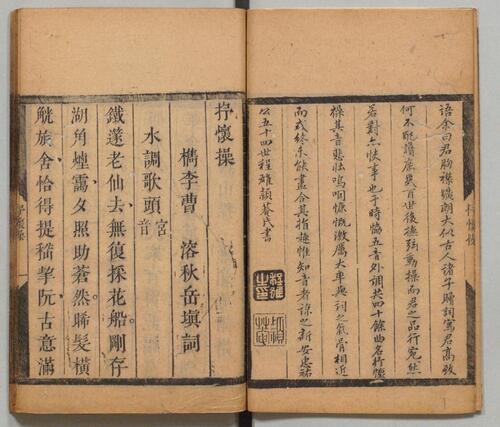 語余曰君胸襟曠朗大似古人諸子贈詞寫君高致
何不能譜庶幾百世後撫弦動操而君之品行宛然
若對亦快事也于時暢五音外調共四十餘曲名抒懷
操其音悲壯嗚咽慷慨激厲大率與詞之氣骨相近
而或終未能盡合其指趣惟知音者諒之新安忠祐
公五十四世程雄穎菴氏書
抒懷操
抒懷操
檇李曹 溶秋岳塡詞
水調歌頭 宮音
鐵邃老仙去無復採花船剛存
湖角煙靄夕照助蒼然晞髮橫
觥旅舍恰得提嵇挈阮古意滿
抒懷操 一